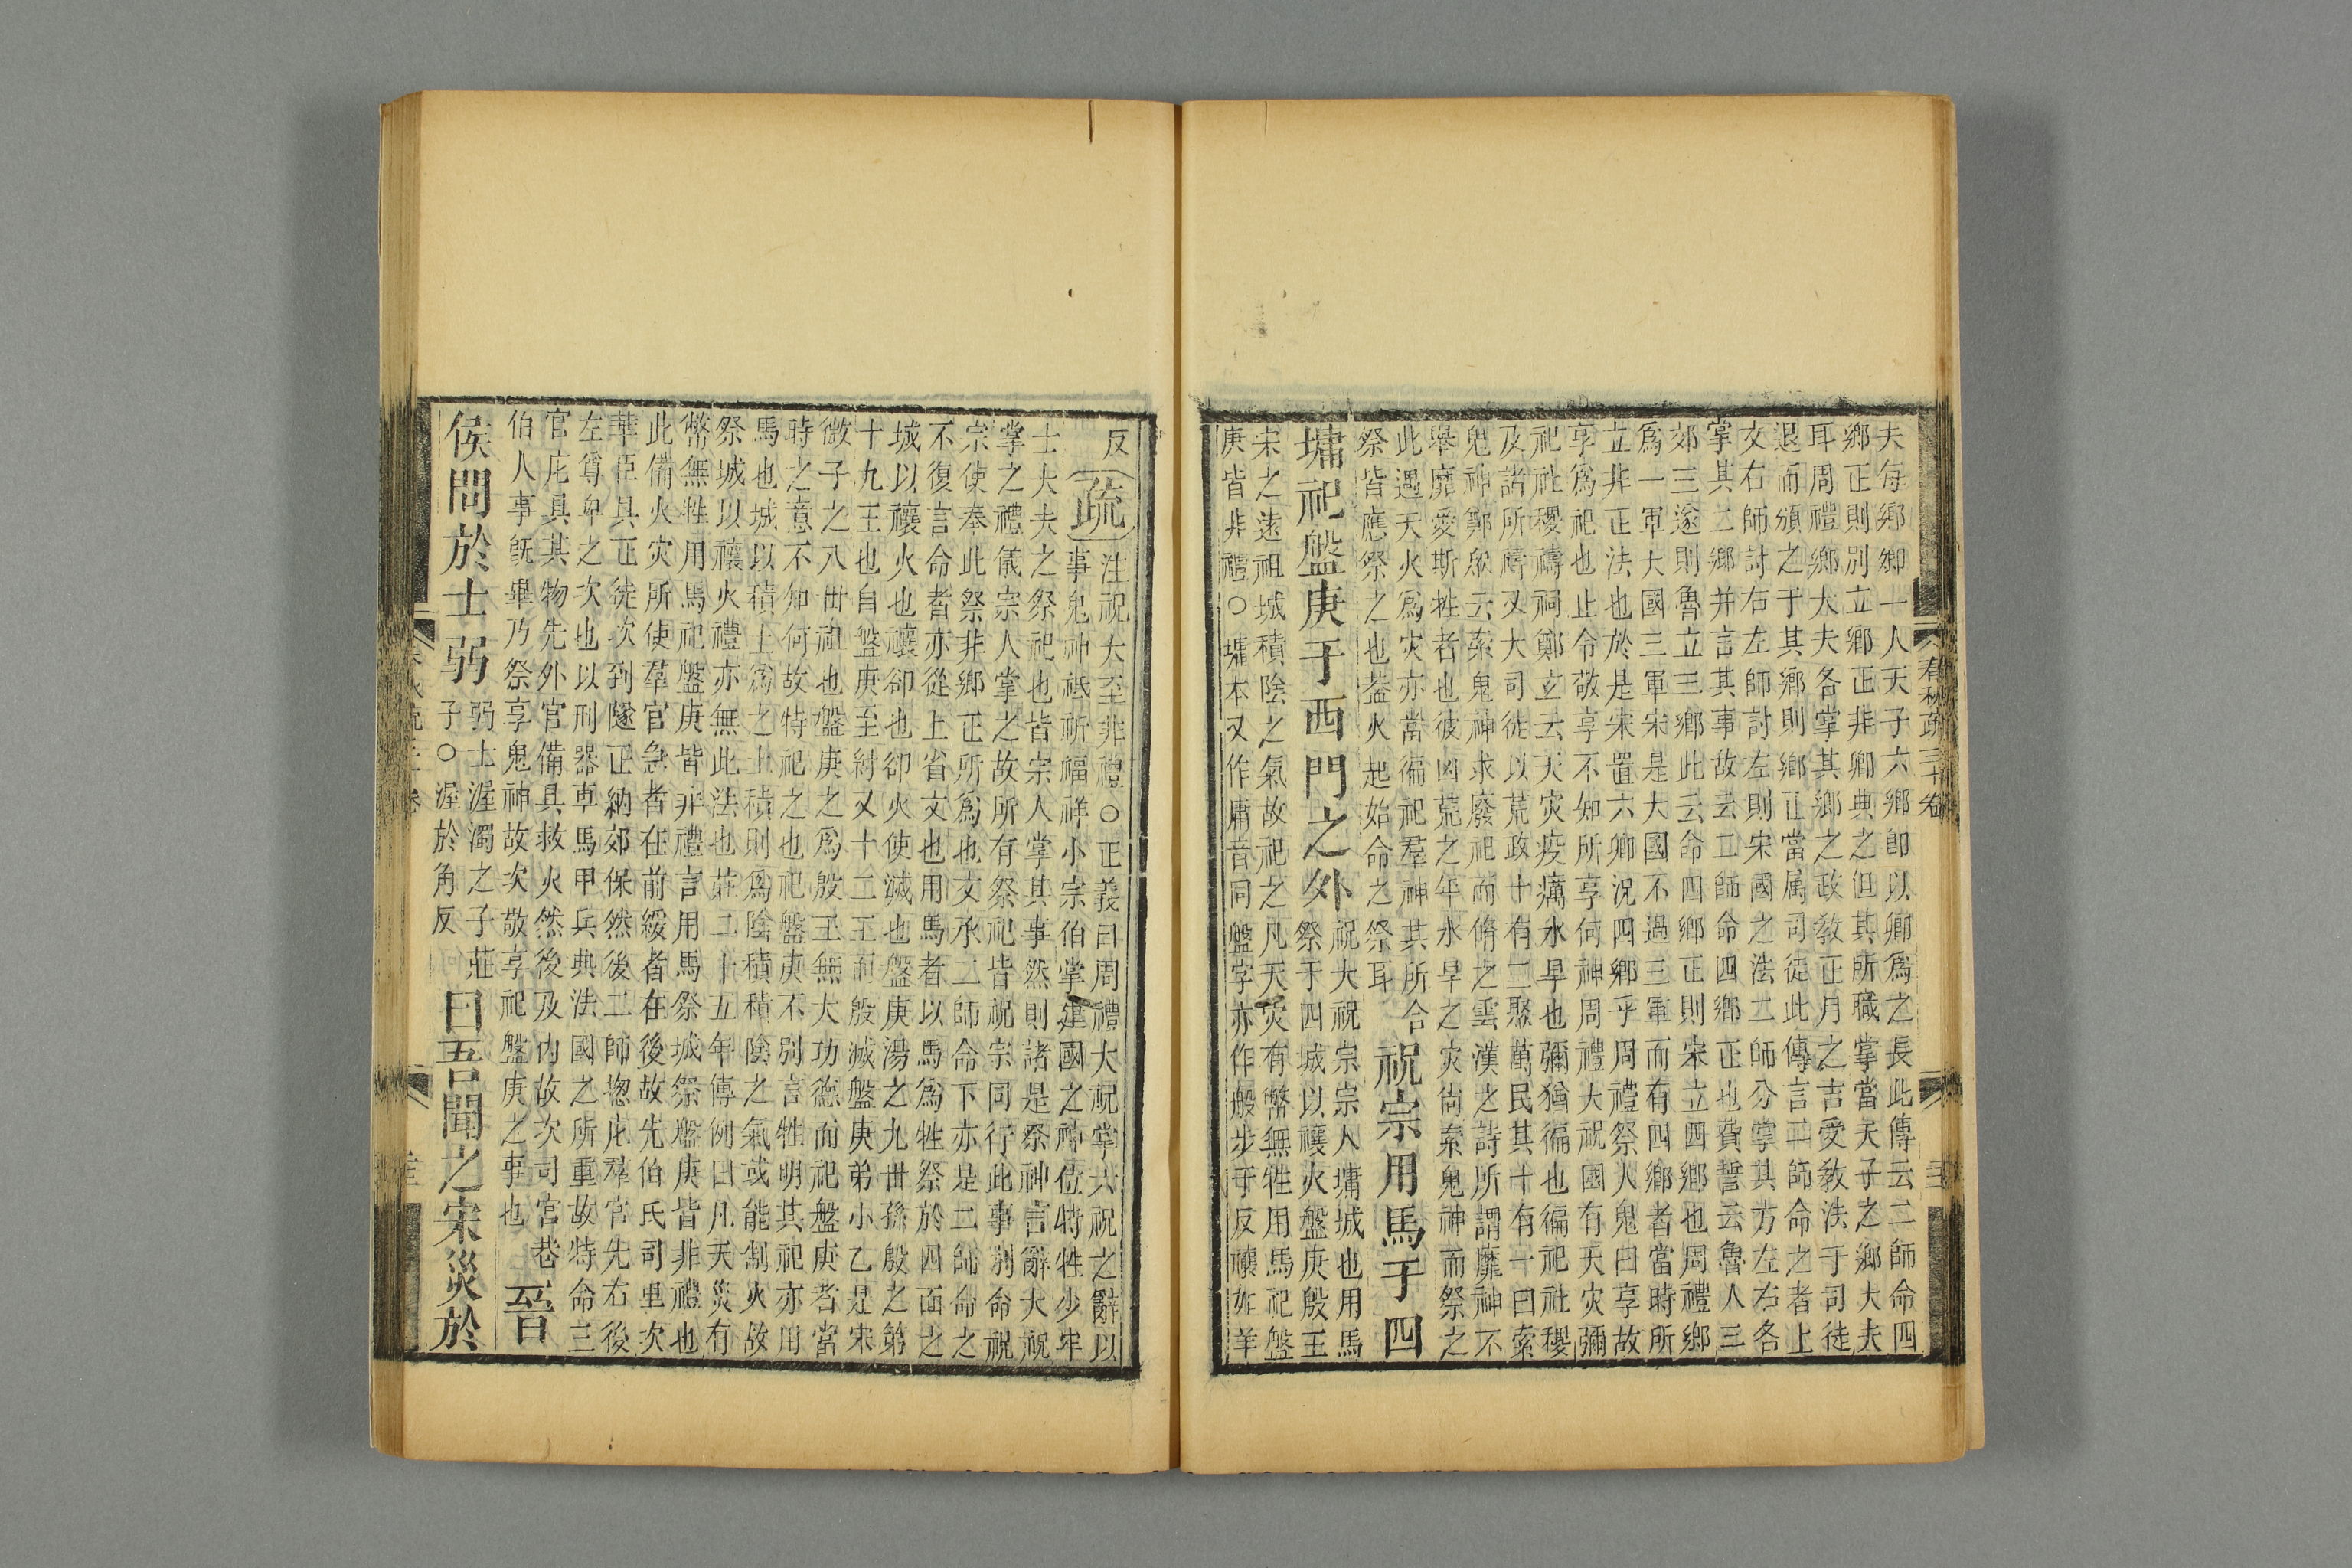 夫每鄉卿一人天子六鄉卽以卿爲之長此傳云二師命四
鄉正則別立鄉正非卿典之但其所職掌當天子之鄉大夫
耳周禮鄉大夫各掌其鄉之政敎正月之吉受敎法于司徒
退而頒之于其鄉則鄉正當属司徒此傳言二師命之者上
文右師討右左師討左則宋國之法二師分掌其方左右各
掌其二鄉并言其事故云二師命四鄉正也費誓云魯人三
郊三遂則魯立三鄉此云命四鄉正則宋立四鄉也周禮鄉
爲一軍大國三軍宋是大國不過三軍而有四鄉者當時所
立非正法也於是宋置六卿況四鄉乎周禮祭人鬼曰享故
享爲祀也止令敬享不知所享何神周禮大祝國有天灾彌
祀社稷禱祠鄭立云天灾疫癘水旱也彌猶徧也徧祀社稷
及諸所禱又大司徒以荒政十有二聚萬民其十有一曰索
鬼神鄭衆云索鬼神求廢祀而脩之雲漢之詩所謂靡神不
舉靡愛斯牲者也彼凶荒之年水旱之灾尙索鬼神而祭之
此遇天火爲灾亦當徧祀羣神其所合
祭皆應祭之也葢火起始命之祭耳
祝宗用馬于四
墉祀盤庚于西門之外
祝大祝宗宗人墉城也用馬
祭于四城以禳火盤庚殷王
宋之遠祖城積陰之氣故祀之凡天灾有幣無牲用馬祀盤
庚皆非禮○墉本又作庸音同盤字亦作般步于反禳如羊
反
疏
注祝大至非禮○正義曰周禮大祝掌六祝之辭以
事鬼神祗祈福祥小宗伯掌建國之神位特牲少牢
士大夫之祭祀也皆宗人掌其事然則諸是祭神言辭大祝
掌之禮儀宗人掌之故所有祭祀皆祝宗同行此事別命祝
宗使奉此祭非鄉正所爲也文承二師命下亦是二師命之
不復言命者亦從上省文也用馬者以馬爲牲祭於四面之
城以禳火也禳卻也卻火使滅也盤庚湯之九世孫殷之第
十九王也自盤庚至紂又十二王而殷滅盤庚弟小乙是宋
微子之八世祖也盤庚之爲殷王無大功德而祀盤庚者當
時之意不知何故特祀之也祀盤庚不別言牲明其祀亦用
馬也城以積土爲之土積則爲陰積積陰之氣或能制火故
祭城以禳火禮亦無此法也莊二十五年傳例曰凡天災有
幣無牲用馬祀盤庚皆非禮言用馬祭城祭盤庚皆非禮也
此備火灾所使羣官急者在前緩者在後故先伯氏司里次
華臣具正徒次到隧正納郊保然後二師揔庀羣官先右後
左尊卑之次也以刑器車馬甲兵典法國之所重故特命三
官庀具其物先外官備具救火然後及內故次司宮巷
伯人事旣畢乃祭享鬼神故次敬享祀盤庚之事也
晉
侯問於士弱
弱士渥濁之子莊
子○渥於角反
曰吾聞之宋災於
春秋疏三十卷